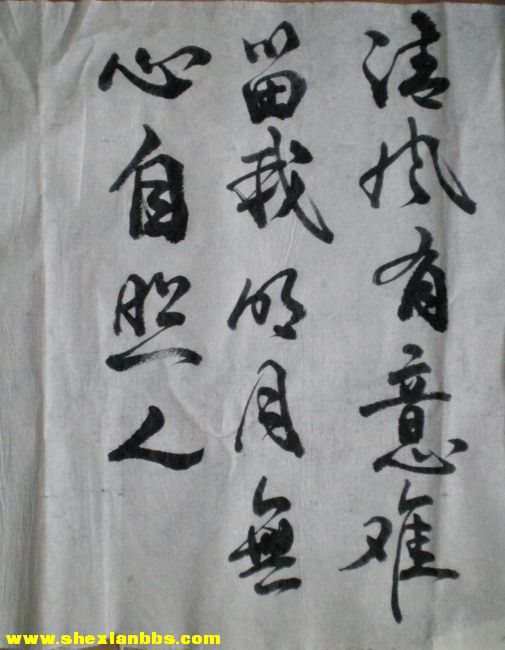 清风有意难
留我明月無
心自照人
www.shexianbbs.com